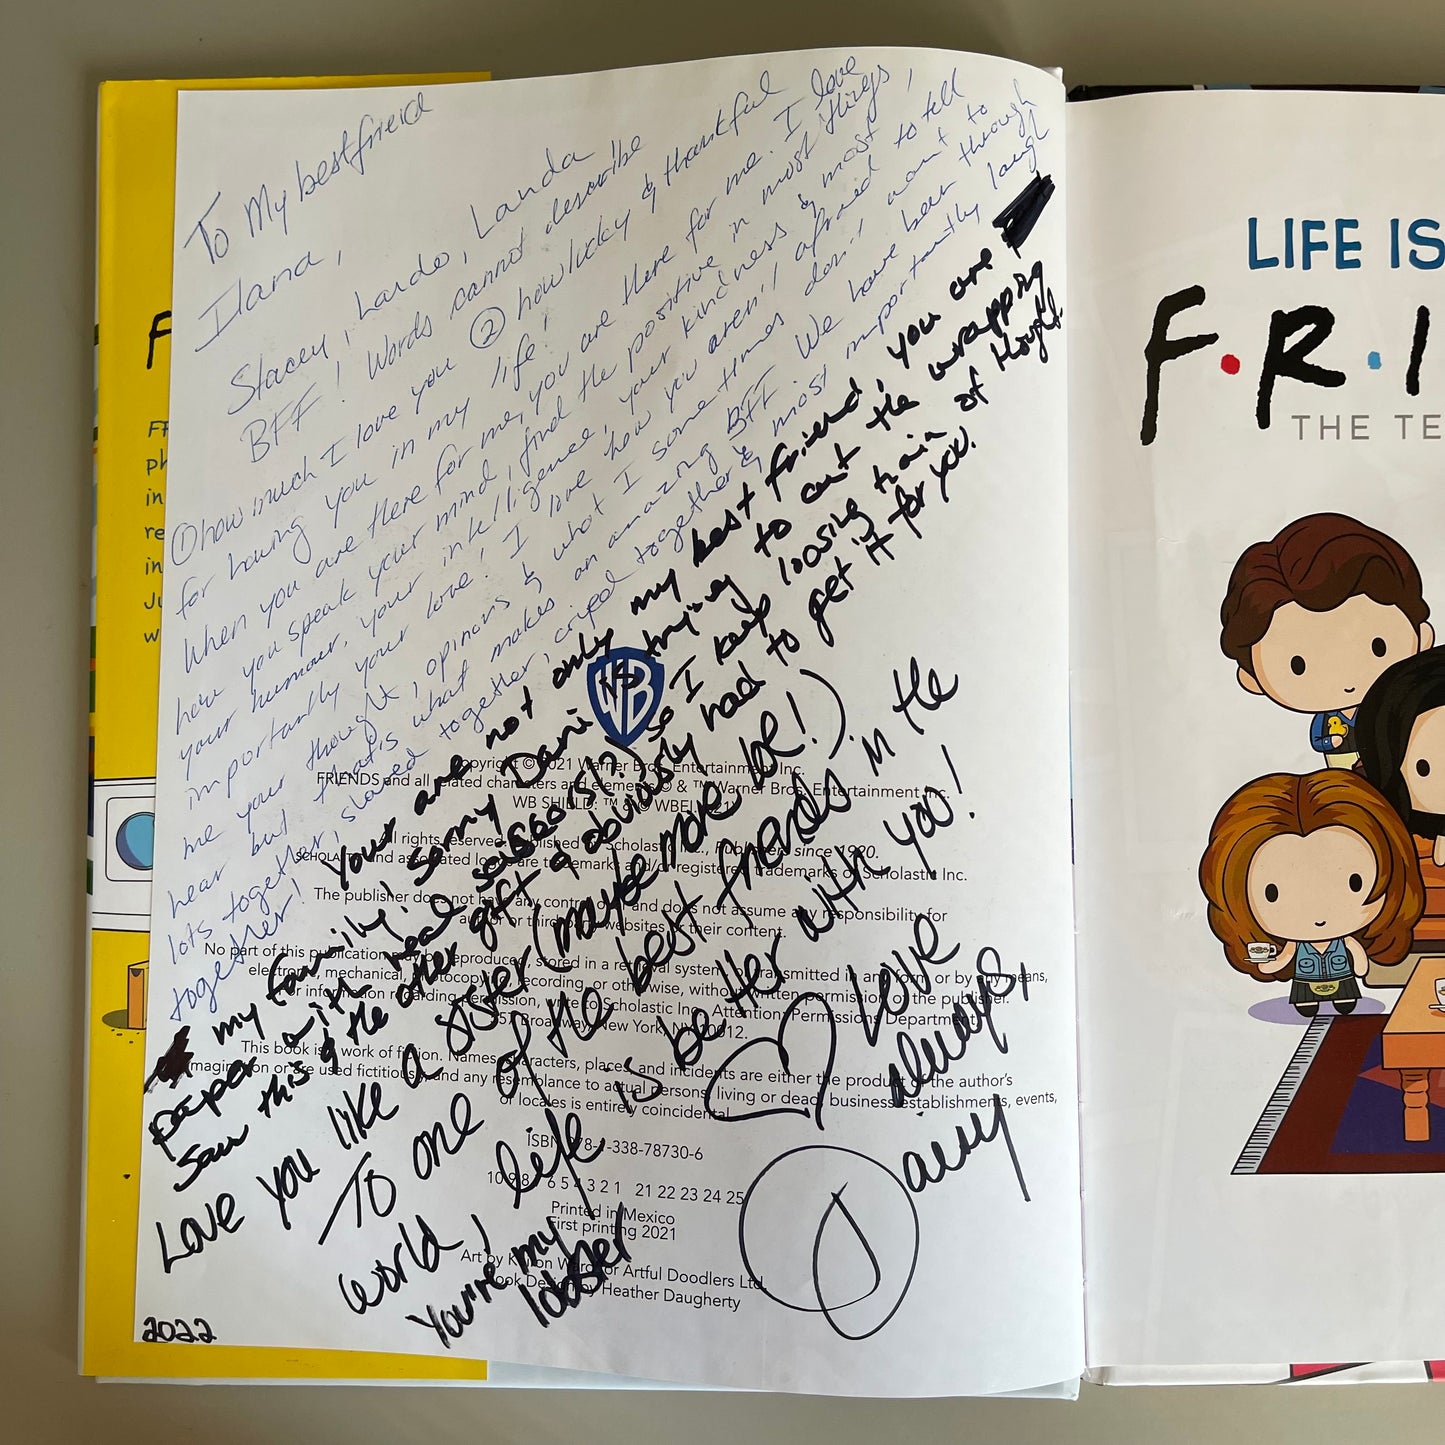 To My bestfriend
Ilana,
Stacey, Lardo, Landa
BFF! Words cannot describe
① how much I love you ② how lucky & thankful
for having you in my life!
When you are there for me, you are there for me. I love
how you speak your mind, find the positive in most things,
your humour, your intelligence, your kindness & most
importantly your love! I love how you aren't afraid to tell
me your thought, opinions & what I sometimes don't want to
hear but that's what makes an amazing BFF. We have been through
lots together, slaved together, cryed together & most importantly laugh
together!
Your are not only my best friend, you are
my family! Sorry Dani is trying to cut the wrapping
paper with real scissors!?! so I keep loosing train of thought.
Saw this & the other gift & obviously had to get it for you.
Love you like a sister (maybe more lol!)
To one of the best friends in the
world, life is better with you!
You're my
lobster
Love
always,
Dainy
2022
WB
Copyright © 2021 Warner Bros. Entertainment Inc.
FRIENDS and all related characters and elements © & ™ Warner Bros. Entertainment Inc.
WB SHIELD: ™ & © WBEI.
All rights reserved. Published by Scholastic Inc., Publishers since 1920.
SCHOLASTIC and associated logos are trademarks and/or registered trademarks of Scholastic Inc.
The publisher does not have any control over and does not assume any responsibility for
author or third-party websites or their content.
No part of this publication may be reproduced, stored in a retrieval system, or transmitted in any form or by any means,
electronic, mechanical, photocopying, recording, or otherwise, without written permission of the publisher.
For information regarding permission, write to Scholastic Inc., Attention: Permissions Department,
557 Broadway, New York, NY 10012.
This book is a work of fiction. Names, characters, places, and incidents are either the product of the author's
imagination or are used fictitiously, and any resemblance to actual persons, living or dead, business establishments, events,
or locales is entirely coincidental.
ISBN 978-1-338-78730-6
10 9 8 7 6 5 4 3 2 1 21 22 23 24 25
Printed in Mexico
First printing 2021
Art by Keiron Ward for Artful Doodlers Ltd.
Book Design by Heather Daugherty
LIFE IS
F•R•I
THE TE
F
FR
ph
in
re
in
Ju
w